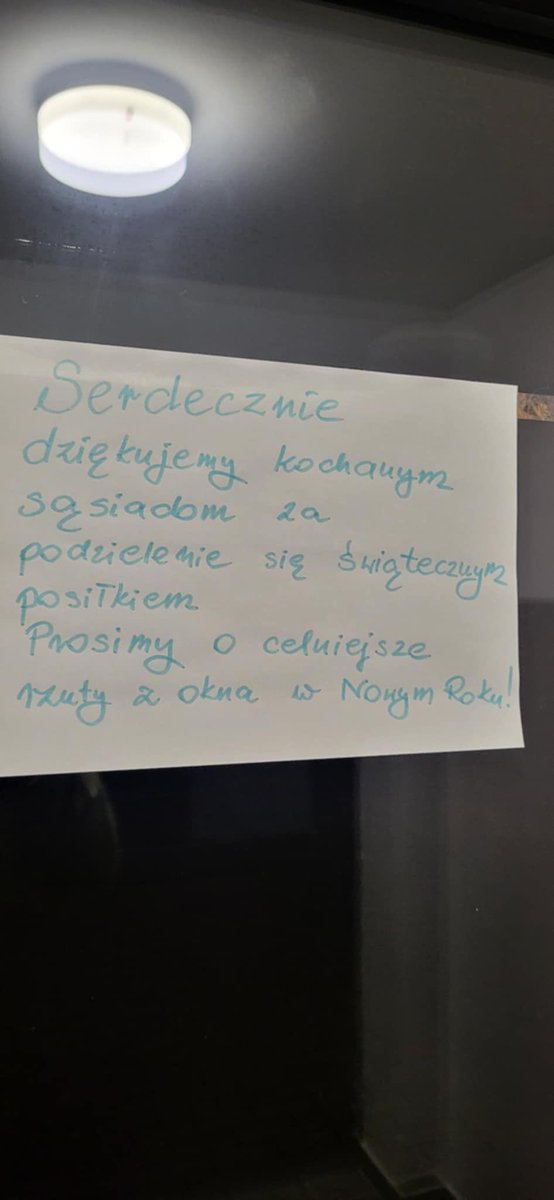 Serdecznie
dziękujemy kochanym
sąsiadom za
podzielenie się świątecznym
posiłkiem
Prosimy o celniejsze
rzuty z okna w Nowym Roku!